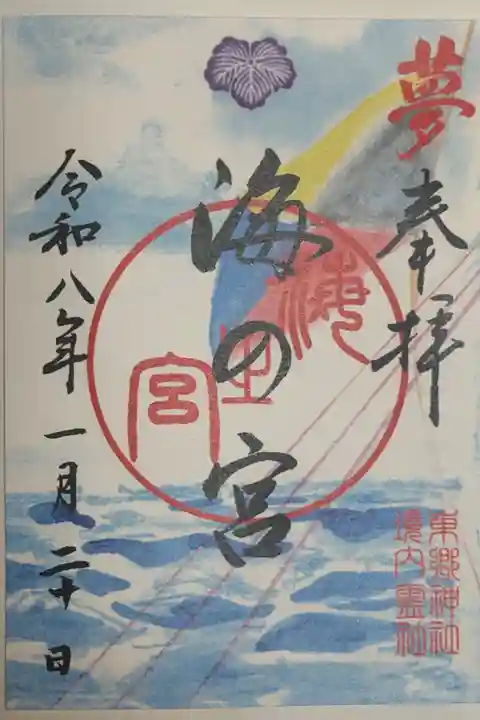 夢
奉拝
海の宮
海
之
宮
東郷神社
境内霊社
令和八年一月二十日